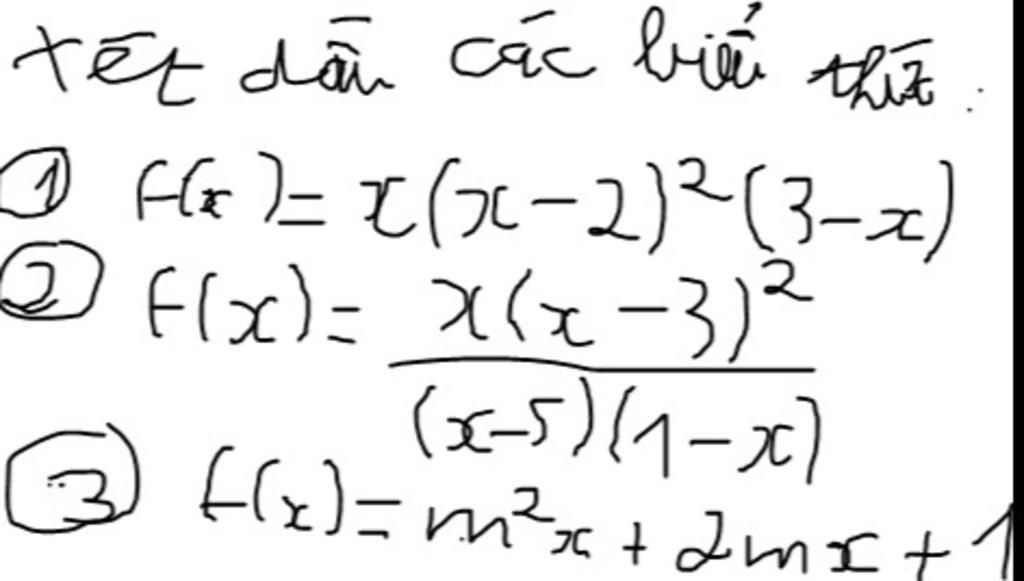 xét dấu các biểu thức:
① f(x) = x(x-2)²(3-x)
② f(x) = x(x-3)² / (x-5)(1-x)
③ f(x) = m²x + 2mx + 1